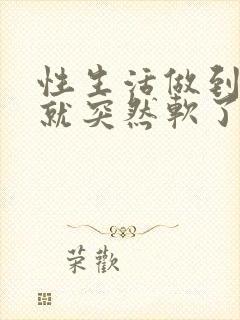 性生活做到
就突然軟了
荣歡